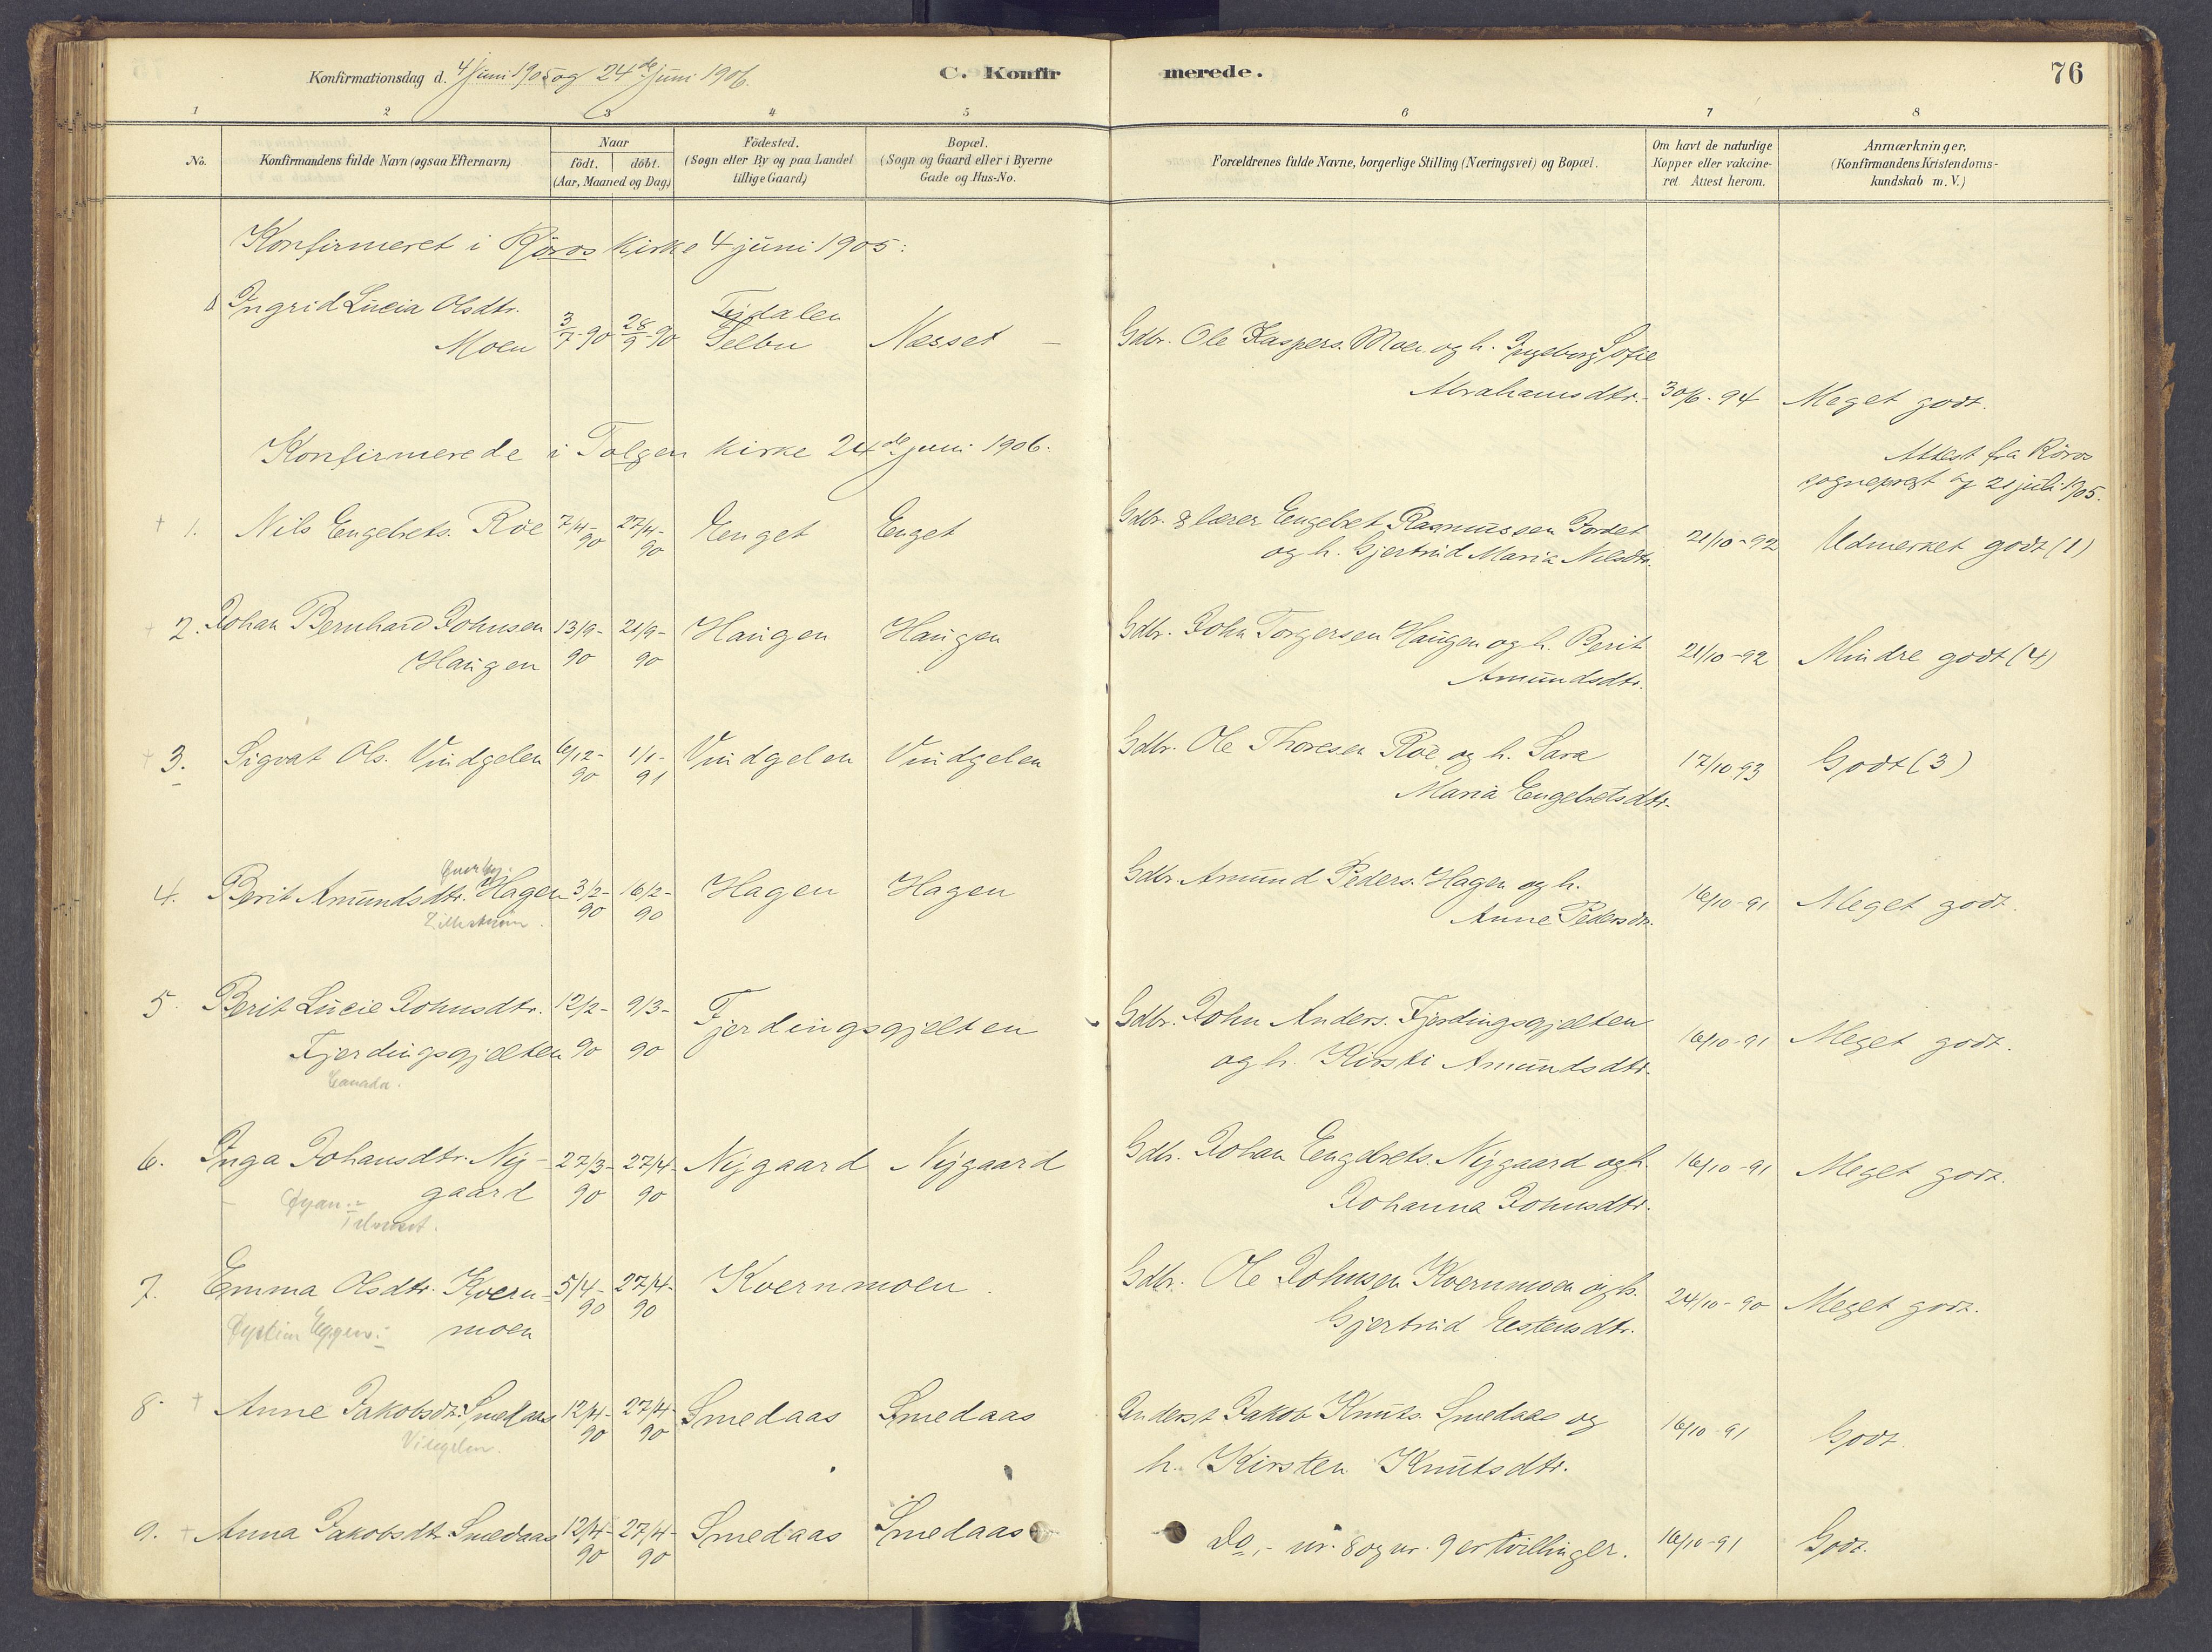 Konfirmationsdag d. 4 Juni 1905 og 24de Juni 1906.
C. Konfirmerede.
76
1 2 3 4 5 6 7 8
No.
Konfirmandens fulde Navn (ogsaa Efternavn)
Naar
födt. döbt.
(Aar, Maaned og Dag)
Födested.
(Sogn eller By og paa Landet
tillige Gaard)
Bopæl.
(Sogn og Gaard eller i Byerne
Gade og Hus-No.
Forældrenes fulde Navne, borgerlige Stilling (Næringsvei) og Bopæl.
Om havt de naturlige
Kopper eller vakcine-
ret. Attest herom.
Anmærkninger,
(Konfirmandens Kristendoms-
kundskab m. V.)
Konfirmeret i Röros Kirke 4 juni 1905:
Ingrid Lucia Olsdtr.
Moen
3/7-90
28/9-90
Tydalen
Selbu
Nesset
Gdbr. Ole Kaspers. Moen og h. Ingeborg Sofie
Abrahamsdtr.
30/6-94
Meget godt.
Attest fra Röros
sogneprest af 21 juli 1905.
Konfirmerede i Tolgen Kirke 24de juni 1906.
1. Nils Engebrets. Röe
7/4-90
27/4-90
Enget
Enget
Gdbr. & lærer Engebret Rasmussen Jordet
og h. Gjertrud Maria Nilsdtr.
21/10-92
Udmerket godt (1)
2. Johan Bernhard Johnsen
Haugen
13/9-90
21/9-90
Haugen
Haugen
Gdbr. John Torgersen Haugen og h. Berit
Amundsdtr.
21/10-92
Mindre godt (4)
3. Sigvat Ols. Vindgelen
6/12-90
1/1-91
Vindgelen
Vindgelen
Gdbr. Ole Thoresen Röe og h. Sara
Maria Engebretsdtr.
17/10-93
Godt (3)
4. Berit Amundsdtr. Hagen
3/2-90
16/2-90
Hagen
Hagen
Gdbr. Amund Peders. Hagen og h.
Anne Pedersdtr.
16/10-91
Meget godt.
5. Berit Lucie Johnsdtr.
Fjerdingsgjelten
Canada.
12/2-90
9/3-90
Fjerdingsgjelten
Gdbr. John Anders. Fjerdingsgjelten
og h. Kirsti Amundsdtr.
16/10-91
Meget godt.
6. Inga Johansdtr. Ny-
gaard
27/3-90
27/4-90
Nygaard
Nygaard
Gdbr. Johan Engebrets. Nygaard og h.
Johanna Johnsdtr.
16/10-91
Meget godt.
7. Emma Olsdtr. Kvern-
moen
5/4-90
27/4-90
Kvernmoen
Gdbr. Ole Johnsen Kvernmoen og h.
Gjertrud Estensdtr.
24/10-90
Meget godt.
8. Anne Jakobsdtr. Smedaas
Vingelen.
12/4-90
27/4-90
Smedaas
Smedaas
Inderst Jakob Knuts. Smedaas og
h. Kirsten Knutsdtr.
16/10-91
Godt.
9. Anna Jakobsdtr. Smedaas
12/4-90
27/4-90
Smedaas
Smedaas
Do,- nr. 8 og nr. 9 er tvillinger.
16/10-91
Godt.